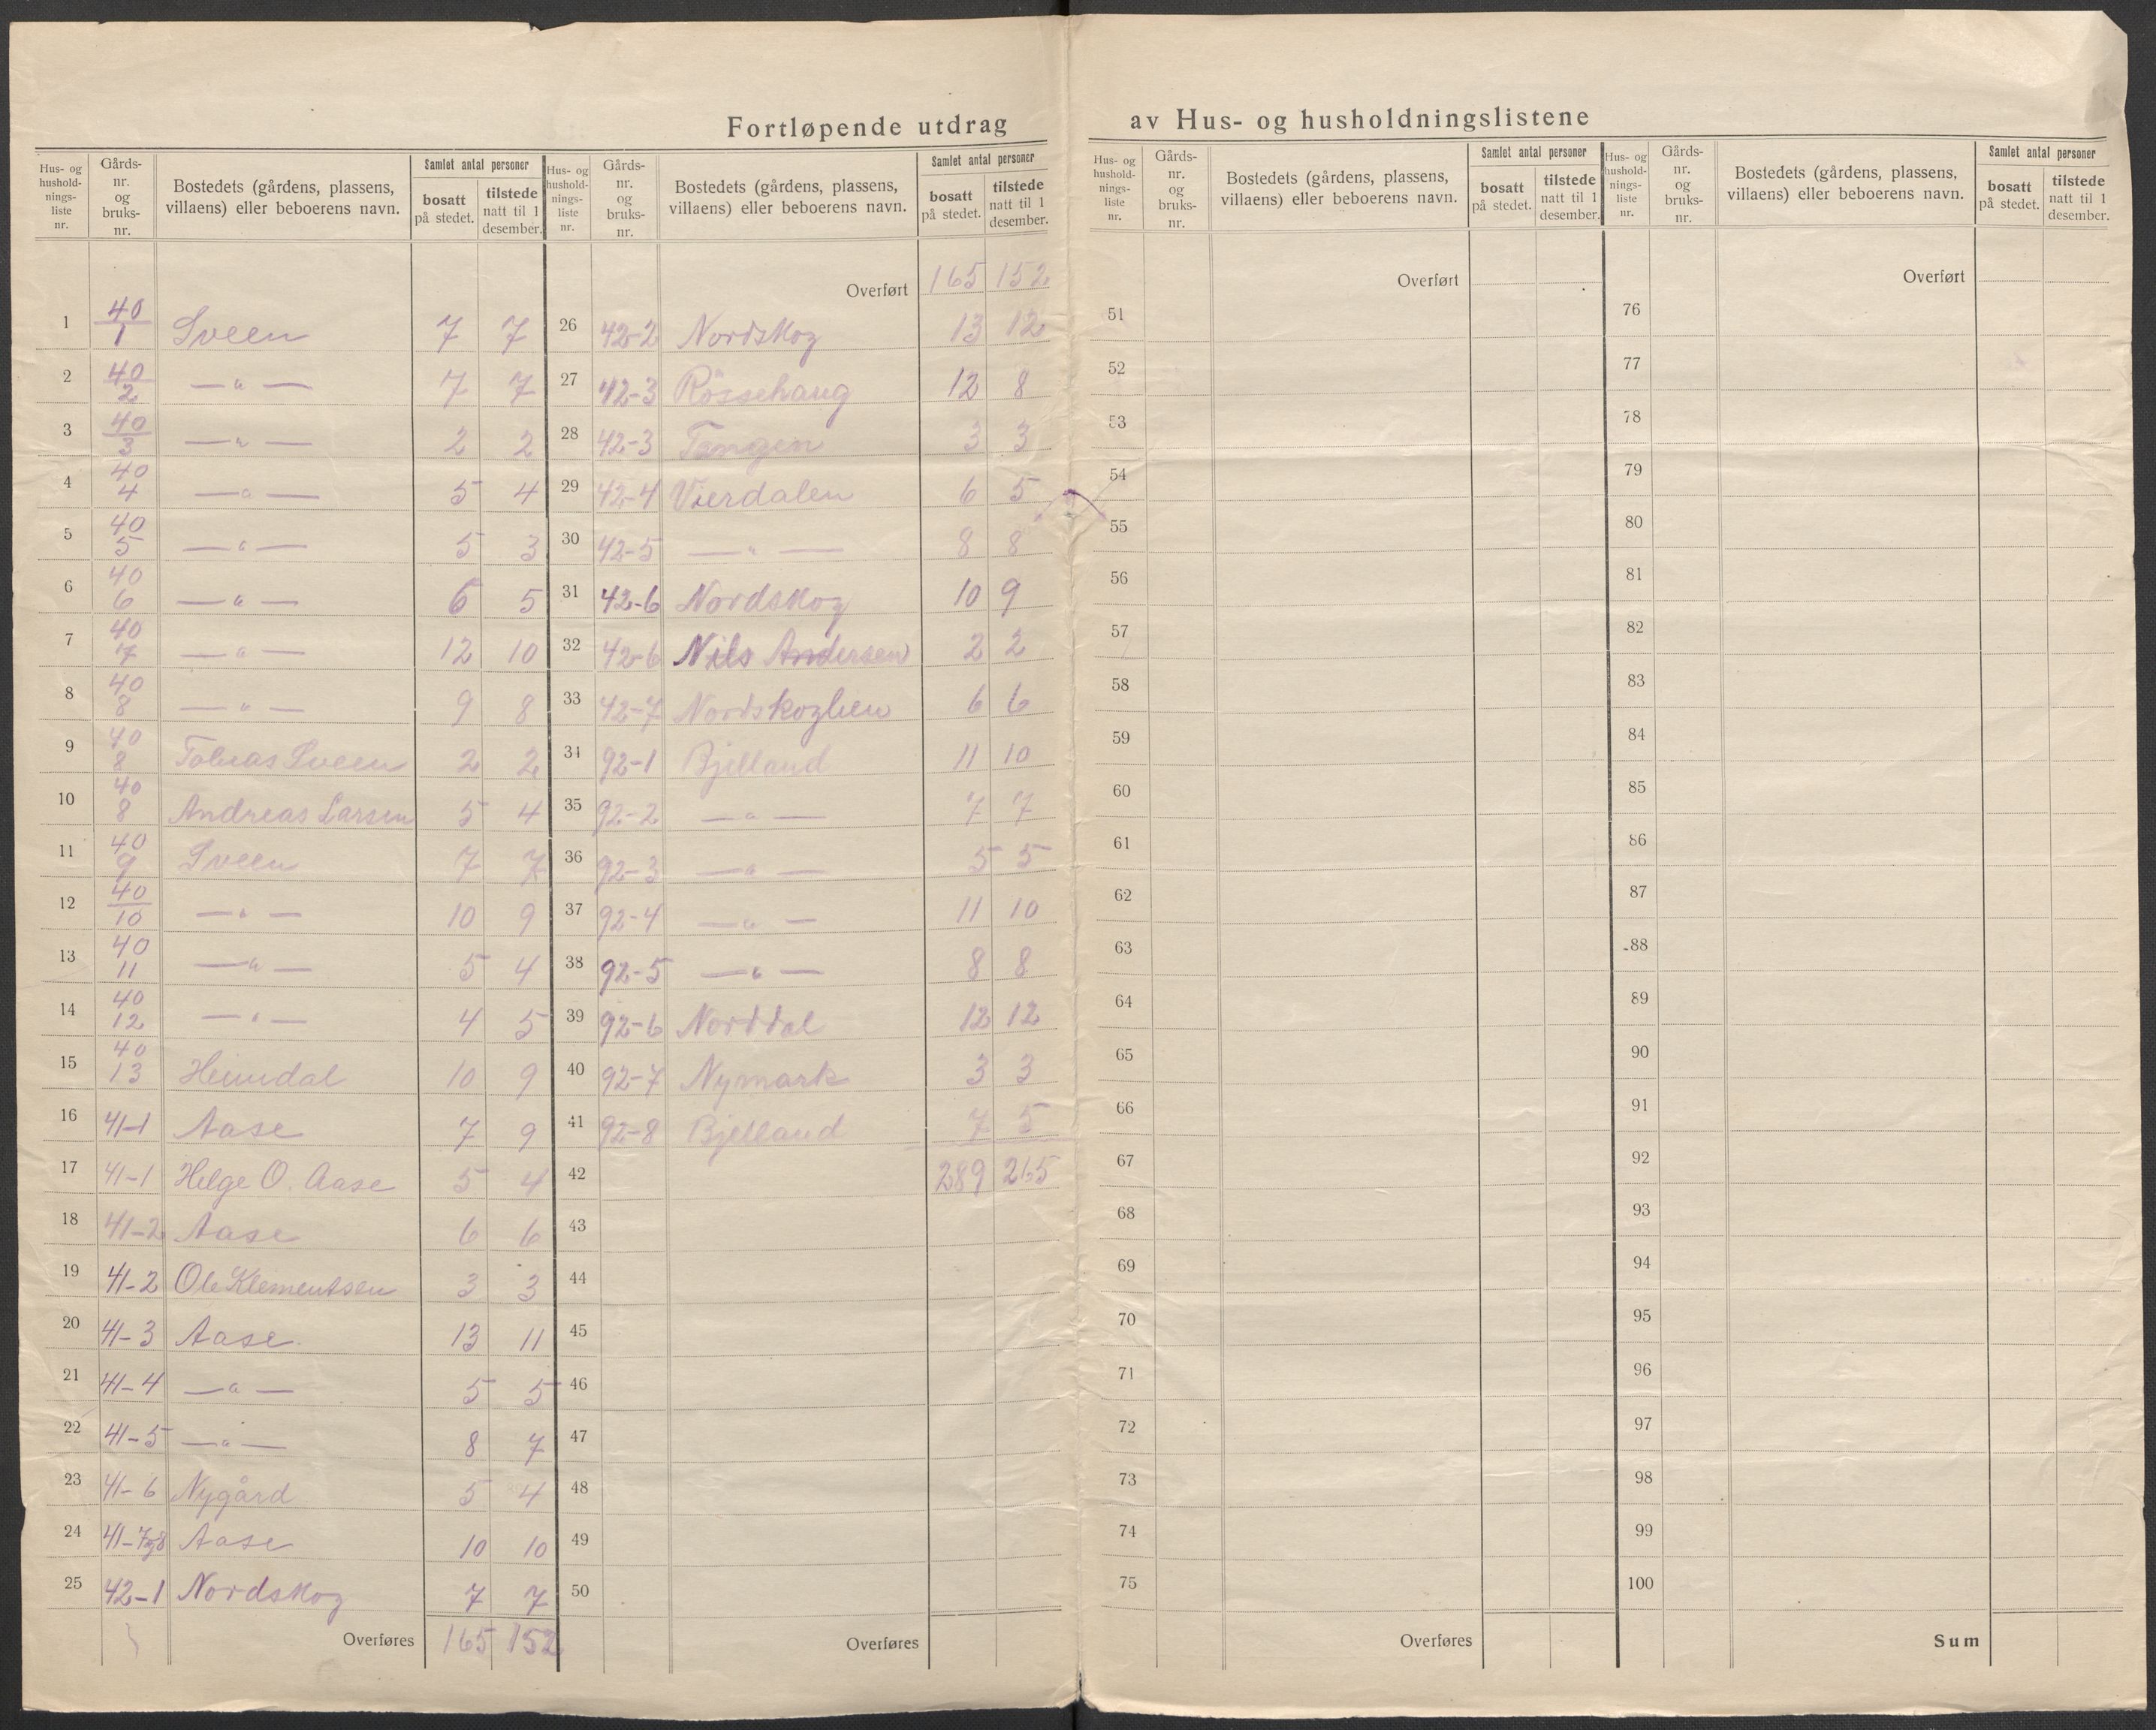 Fortløpende utdrag av Hus- og husholdningslistene
Hus- og hushold-nings-liste nr. | Gårds-nr. og bruks-nr. | Bostedets (gårdens, plassens, villaens) eller beboerens navn. | Samlet antal personer bosatt på stedet. | tilstede natt til 1 desember.
1 40/1 Sveen 7 7
2 40/2 —"— 7 7
3 40/3 —"— 2 2
4 40/4 —"— 5 4
5 40/5 —"— 5 3
6 40/6 —"— 6 5
7 40/7 —"— 12 10
8 40/8 —"— 9 8
9 40/8 Tobias Sveen 2 2
10 40/8 Andreas Larsen 5 4
11 40/9 Sveen 7 7
12 40/10 —"— 10 9
13 40/11 —"— 5 4
14 40/12 —"— 4 5
15 40/13 Heimdal 10 9
16 41-1 Aase 7 9
17 41-1 Helge O. Aase 5 4
18 41-2 Aase 6 6
19 41-2 Ole Klementsen 3 3
20 41-3 Aase 13 11
21 41-4 —"— 5 5
22 41-5 —"— 8 7
23 41-6 Nygård 5 4
24 41-7og8 Aase 10 10
25 42-1 Nordskog 7 7
Overføres 165 152
Hus- og hushold-nings-liste nr. | Gårds-nr. og bruks-nr. | Bostedets (gårdens, plassens, villaens) eller beboerens navn. | Samlet antal personer bosatt på stedet. | tilstede natt til 1 desember.
Overført 165 152
26 42-2 Nordskog 13 12
27 42-3 Rössehaug 12 8
28 42-3 Tangen 3 3
29 42-4 Vierdalen 6 5
30 42-5 —"— 8 8
31 42-6 Nordskog 10 9
32 42-6 Nils Andersen 2 2
33 42-7 Nordskoglien 6 6
34 92-1 Bjelland 11 10
35 92-2 —"— 7 7
36 92-3 —"— 5 5
37 92-4 —"— 11 10
38 92-5 —"— 8 8
39 92-6 Norddal 12 12
40 92-7 Nymark 3 3
41 92-8 Bjelland 7 5
42 289 265
43
44
45
46
47
48
49
50
Overføres
Hus- og hushold-nings-liste nr. | Gårds-nr. og bruks-nr. | Bostedets (gårdens, plassens, villaens) eller beboerens navn. | Samlet antal personer bosatt på stedet. | tilstede natt til 1 desember.
Overført
51
52
53
54
55
56
57
58
59
60
61
62
63
64
65
66
67
68
69
70
71
72
73
74
75
Overføres
Hus- og hushold-nings-liste nr. | Gårds-nr. og bruks-nr. | Bostedets (gårdens, plassens, villaens) eller beboerens navn. | Samlet antal personer bosatt på stedet. | tilstede natt til 1 desember.
Overført
76
77
78
79
80
81
82
83
84
85
86
87
88
89
90
91
92
93
94
95
96
97
98
99
100
Sum